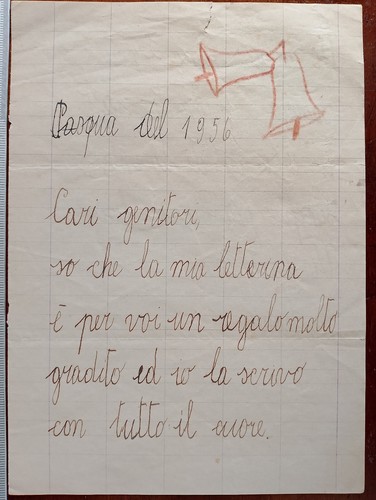 Pasqua del 1956
Cari genitori,
so che la mia letterina
è per voi un regalo molto
gradito ed io la scrivo
con tutto il cuore.